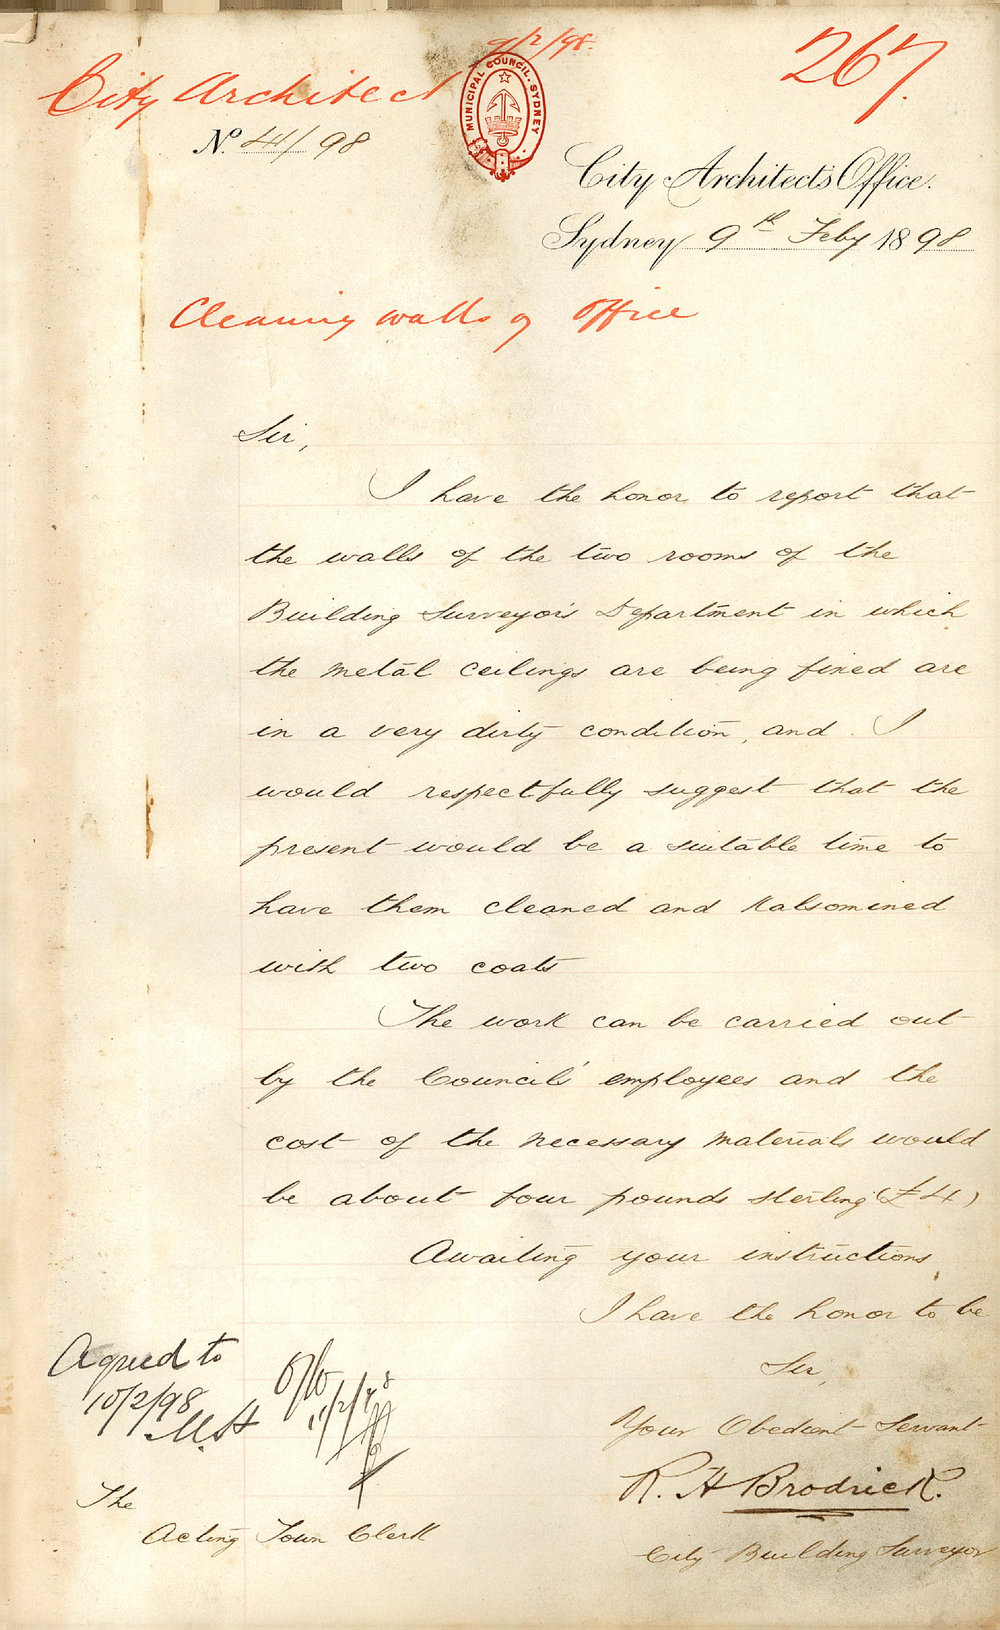 9/2/98.
267.
City Architect
MUNICIPAL COUNCIL. SYDNEY
No. 41/98
City Architect's Office.
Sydney 9th Feby 1898
Cleaning walls of Office
Sir,
I have the honor to report that
the walls of the two rooms of the
Building Surveyor's Department in which
the metal ceilings are being fixed are
in a very dirty condition, and I
would respectfully suggest that the
present would be a suitable time to
have them cleaned and Kalsomined
with two coats
The work can be carried out
by the Council's employees and the
cost of the necessary materials would
be about four pounds sterling (£4)
Awaiting your instructions,
I have the honor to be
Sir,
Your Obedient Servant
R. H Brodrick.
City Building Surveyor
Agreed to
10/2/98
11/2/98
The
Acting Town Clerk